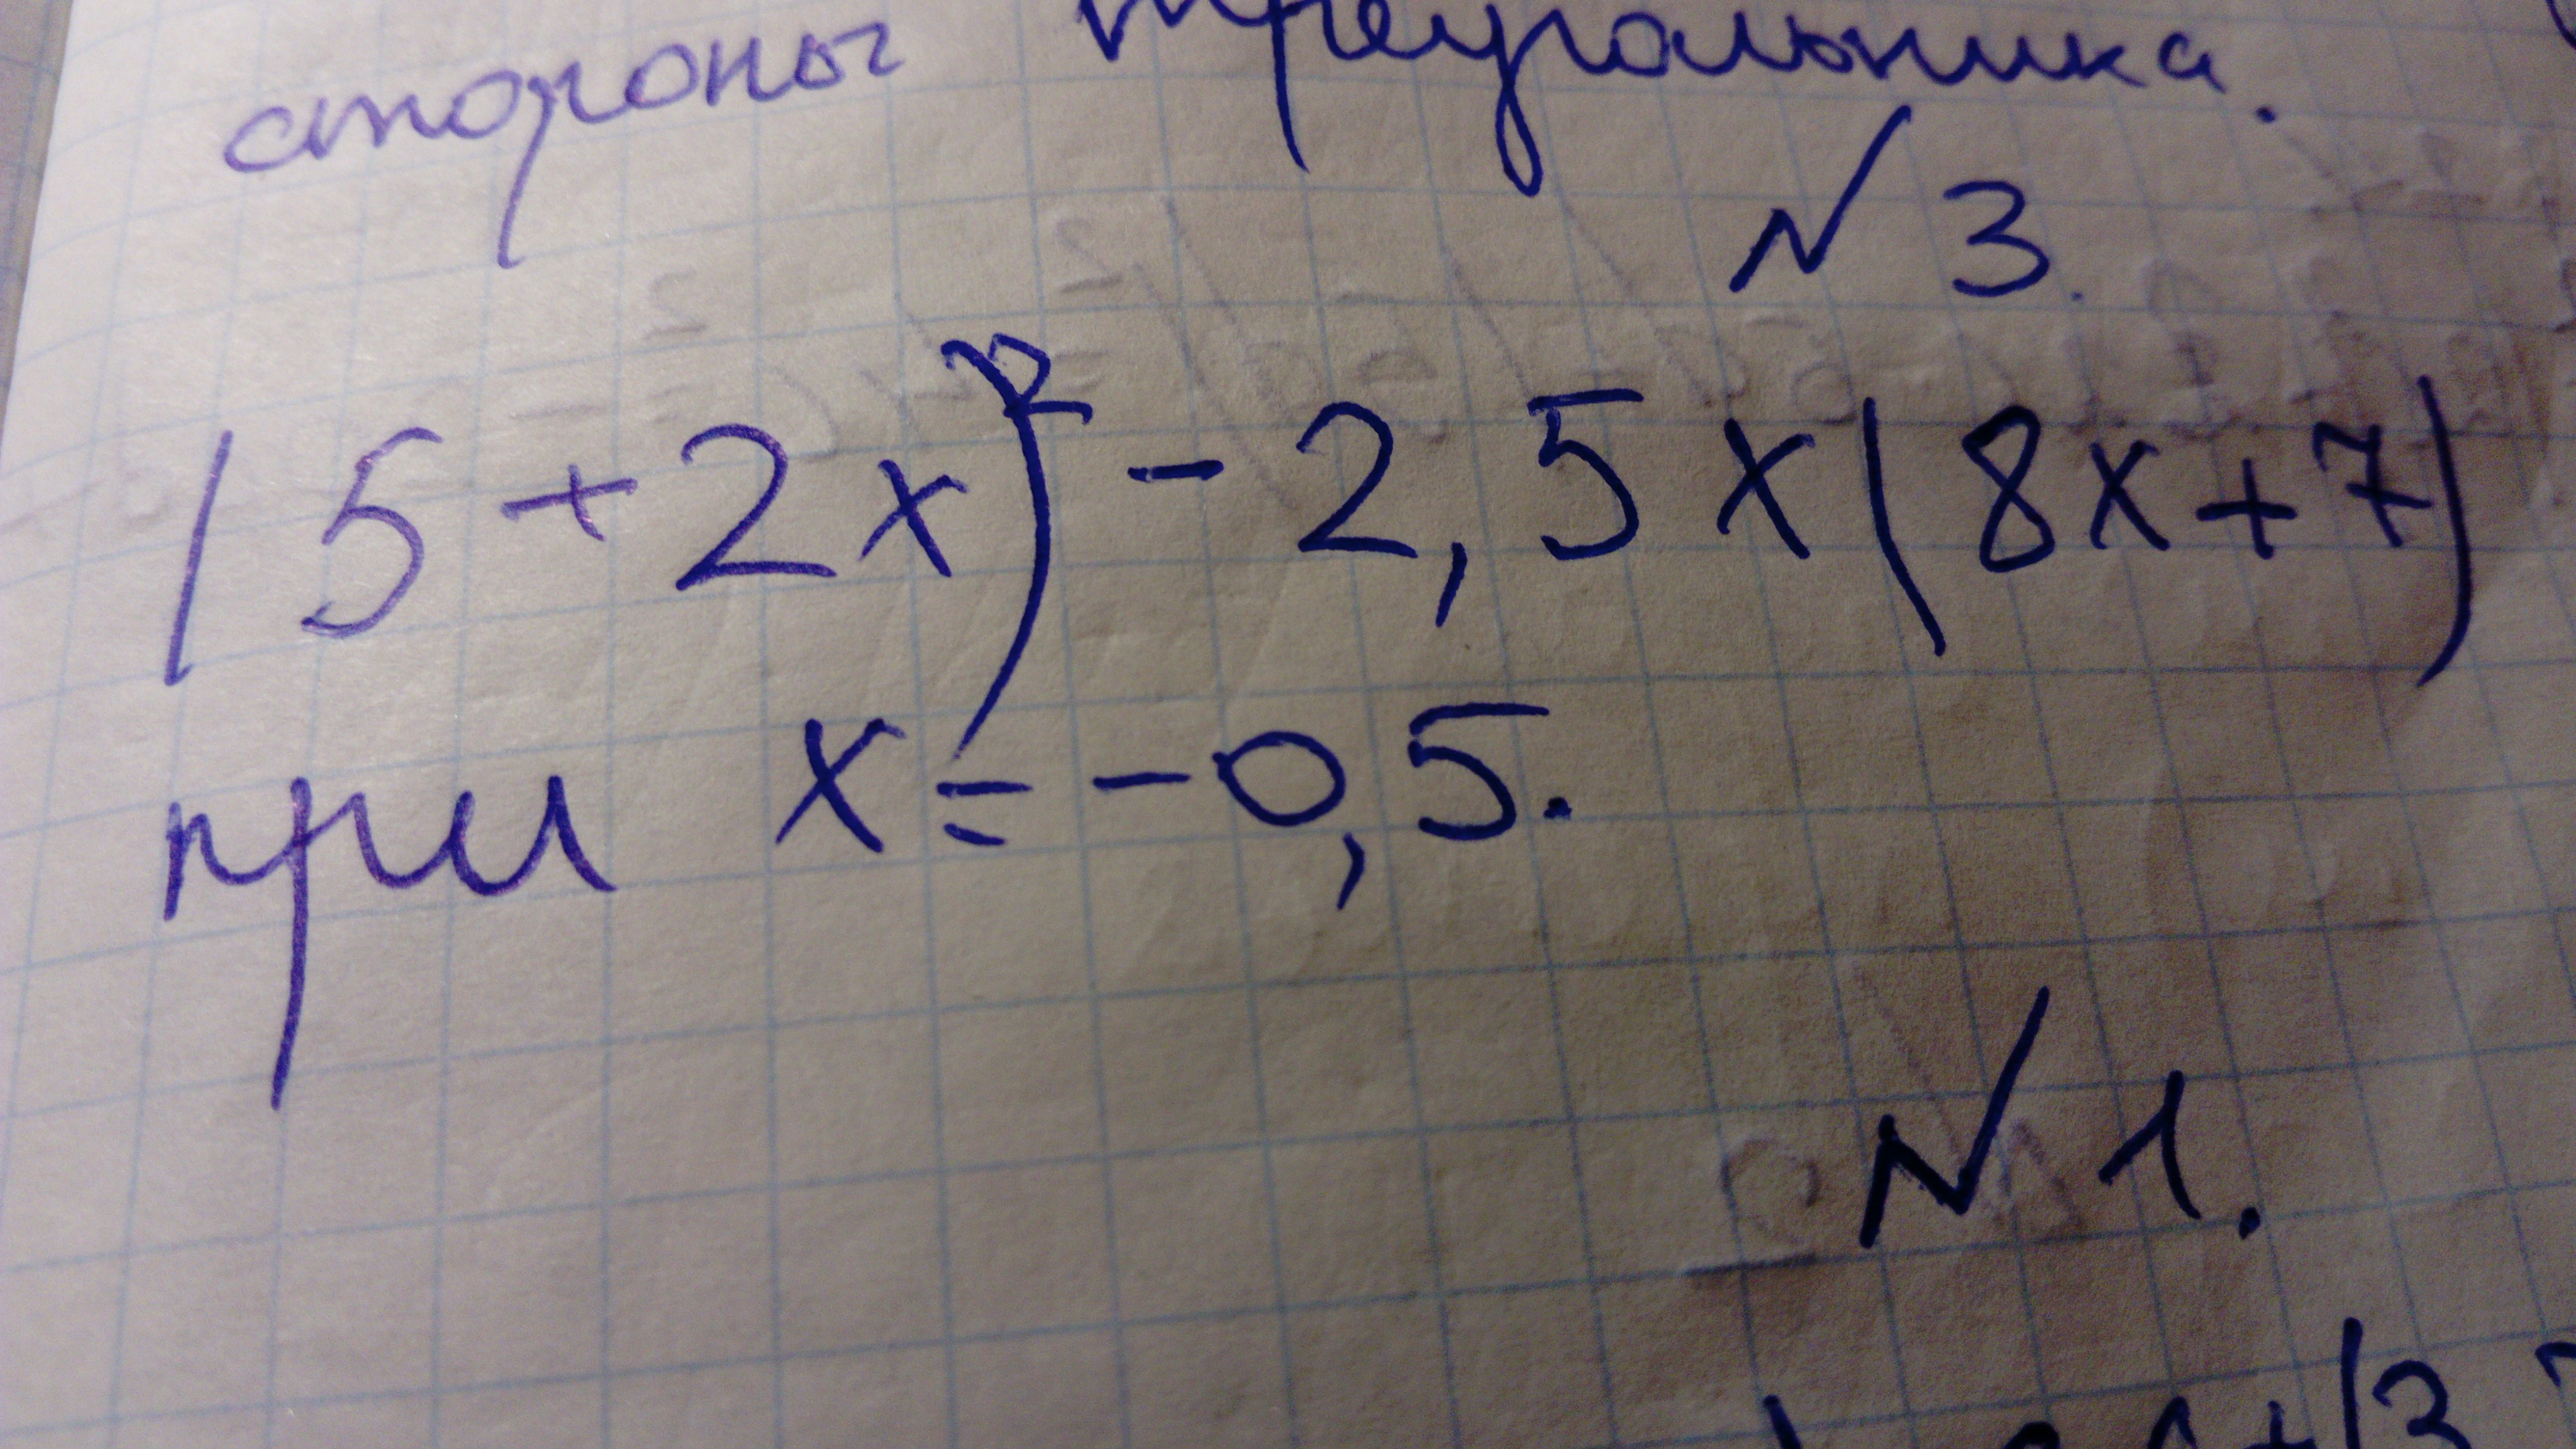 стороны треугольника.
№3.
(5+2x)² - 2,5x(8x+7)
при x=-0,5.
№1.